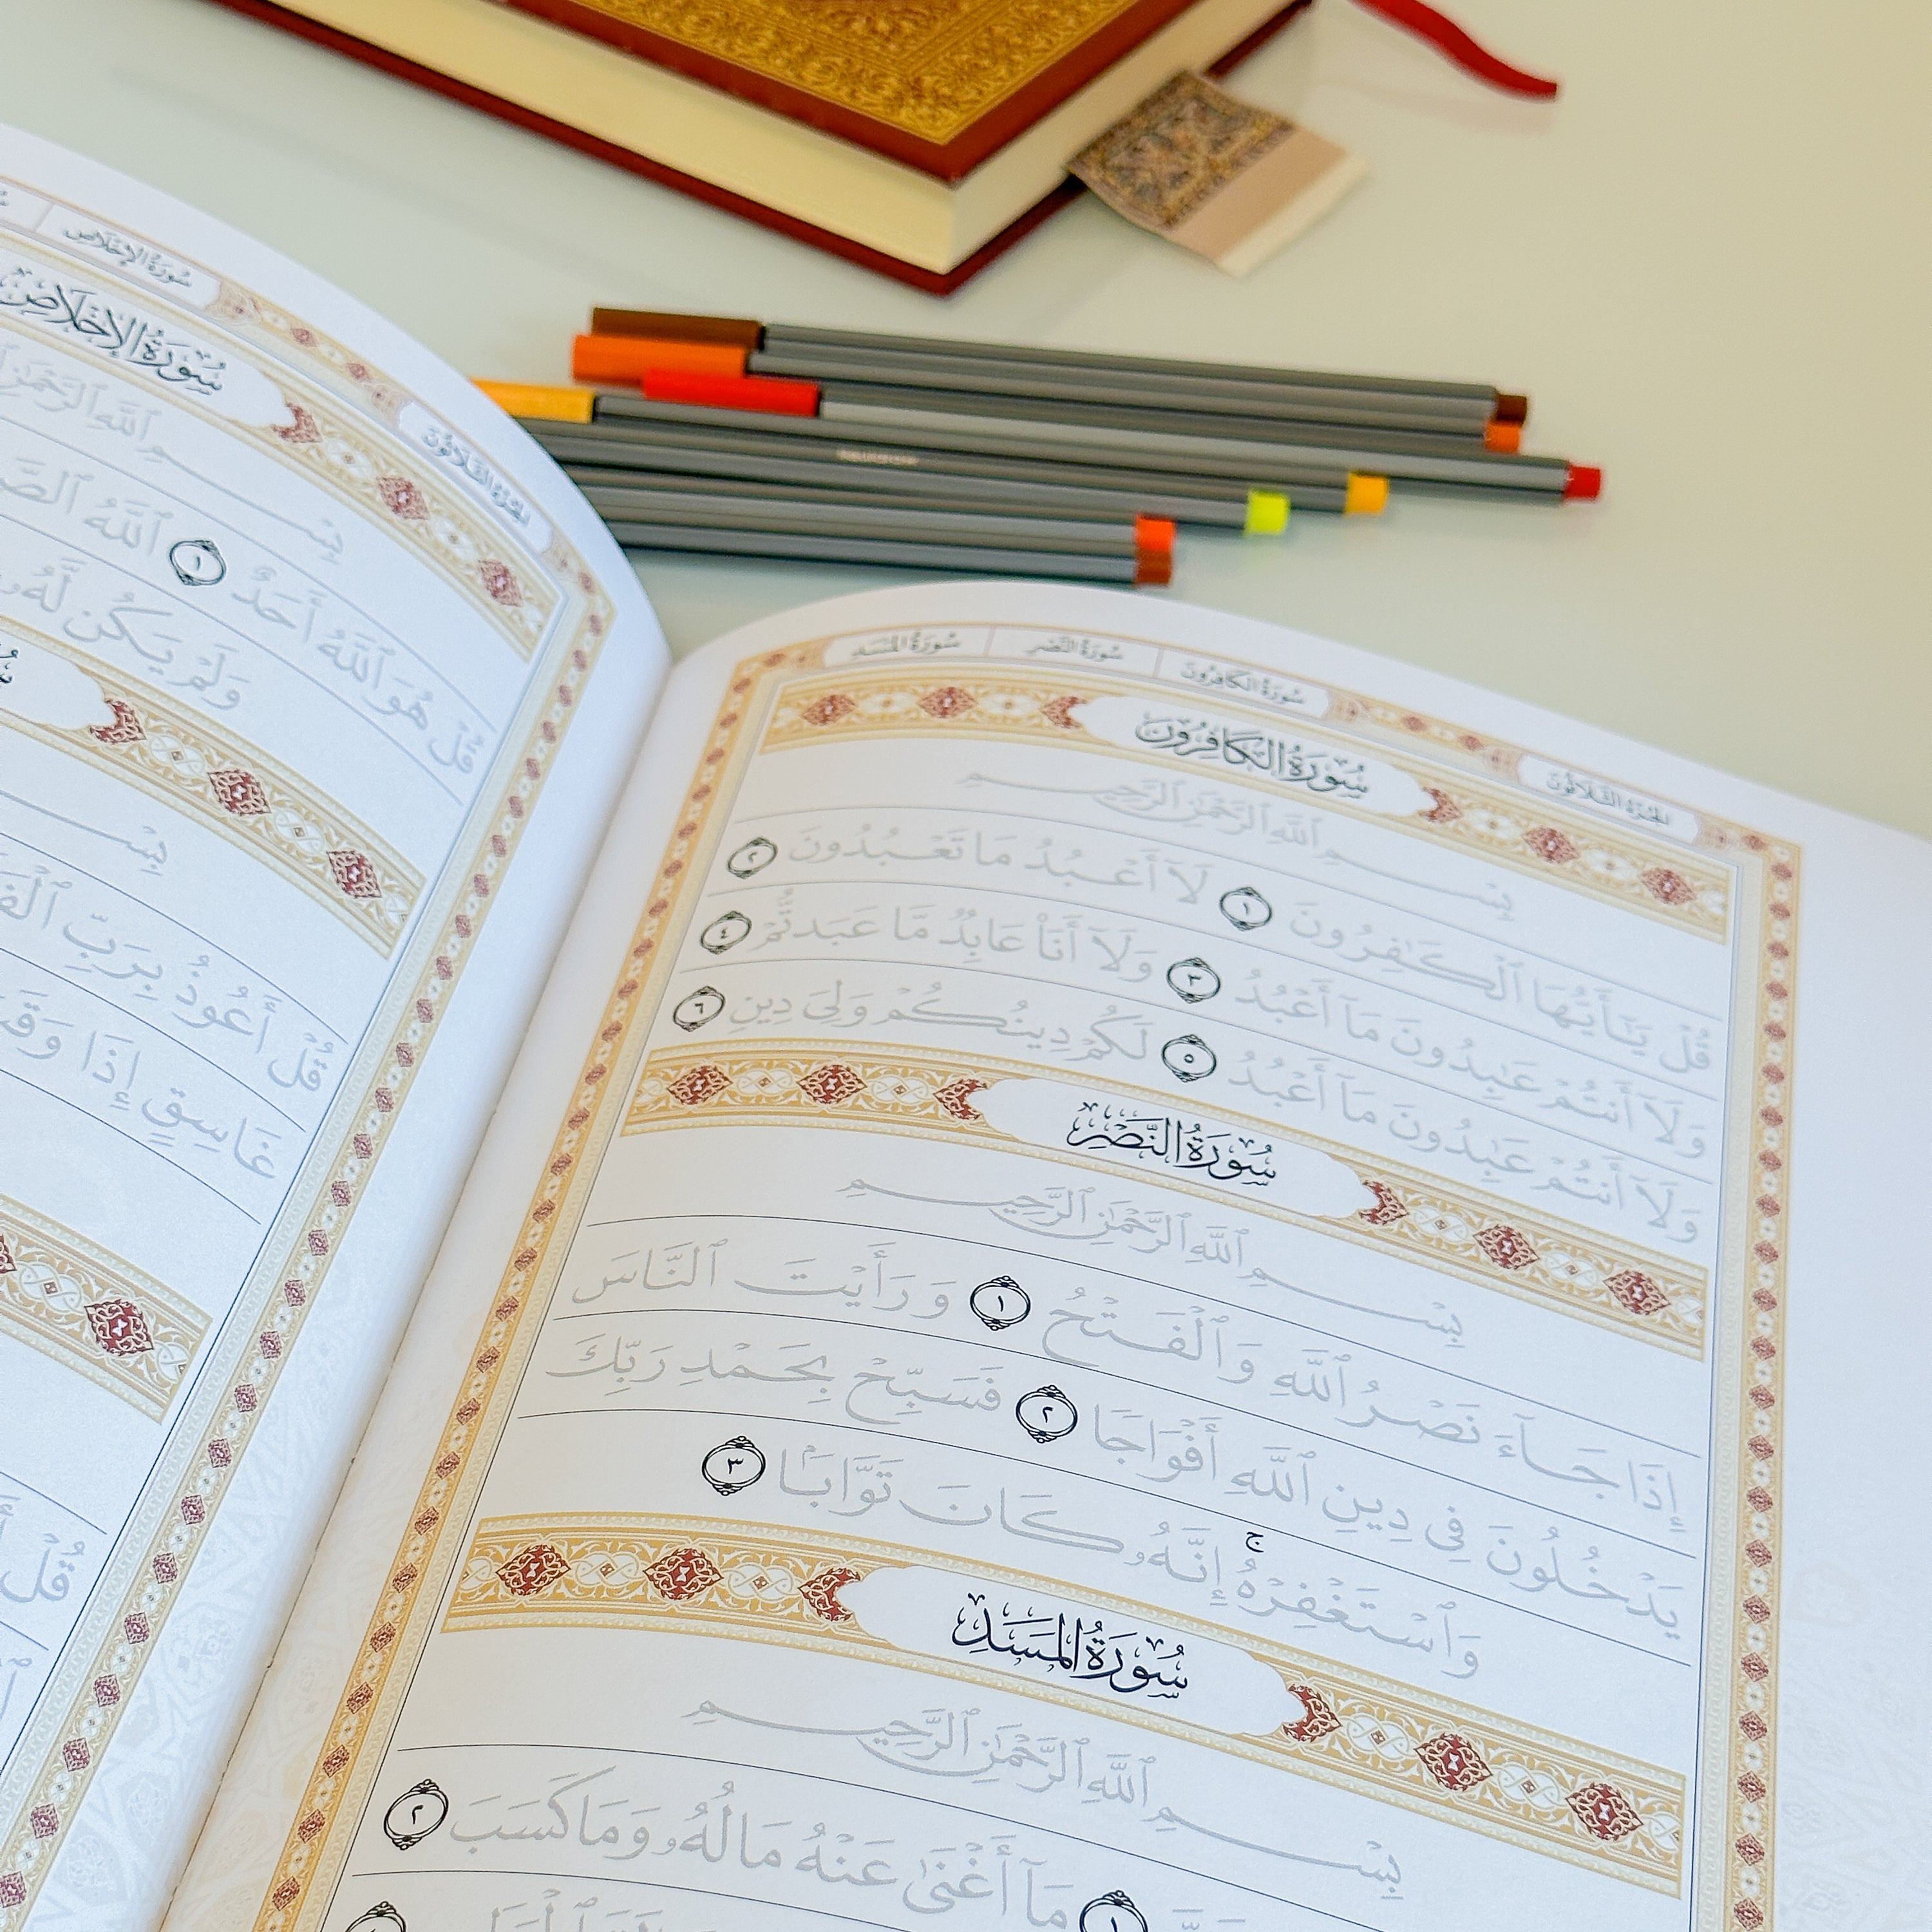 سُورَةُ الكَافِرُونَ
سُورَةُ النَّصْرِ
سُورَةُ المَسَدِ
الجُزْءُ الثَّلَاثُونَ
سُورَةُ الكَافِرُونَ
بِسْمِ ٱللَّهِ ٱلرَّحْمَٰنِ ٱلرَّحِيمِ
قُلْ يَٰٓأَيُّهَا ٱلْكَٰفِرُونَ ١ لَآ أَعْبُدُ مَا تَعْبُدُونَ ٢
وَلَآ أَنتُمْ عَٰبِدُونَ مَآ أَعْبُدُ ٣ وَلَآ أَنَا۠ عَابِدٌ مَّا عَبَدتُّمْ ٤
وَلَآ أَنتُمْ عَٰبِدُونَ مَآ أَعْبُدُ ٥ لَكُمْ دِينُكُمْ وَلِىَ دِينِ ٦
سُورَةُ النَّصْرِ
بِسْمِ ٱللَّهِ ٱلرَّحْمَٰنِ ٱلرَّحِيمِ
إِذَا جَآءَ نَصْرُ ٱللَّهِ وَٱلْفَتْحُ ١ وَرَأَيْتَ ٱلنَّاسَ
يَدْخُلُونَ فِى دِينِ ٱللَّهِ أَفْوَاجًا ٢ فَسَبِّحْ بِحَمْدِ رَبِّكَ
وَٱسْتَغْفِرْهُ ۚ إِنَّهُۥ كَانَ تَوَّابًۢا ٣
سُورَةُ المَسَدِ
بِسْمِ ٱللَّهِ ٱلرَّحْمَٰنِ ٱلرَّحِيمِ
١ مَآ أَغْنَىٰ عَنْهُ مَالُهُۥ وَمَا كَسَبَ ٢
سُورَةُ الإِخْلَاصِ
الجُزْءُ الثَّلَاثُونَ
سُورَةُ الإِخْلَاصِ
بِسْمِ ٱللَّهِ ٱلرَّحْمَٰنِ
قُلْ هُوَ ٱللَّهُ أَحَدٌ ١ ٱللَّهُ
وَلَمْ يَكُن لَّهُۥ
بِسْمِ
قُلْ أَعُوذُ بِرَبِّ
غَاسِقٍ إِذَا
قُلْ